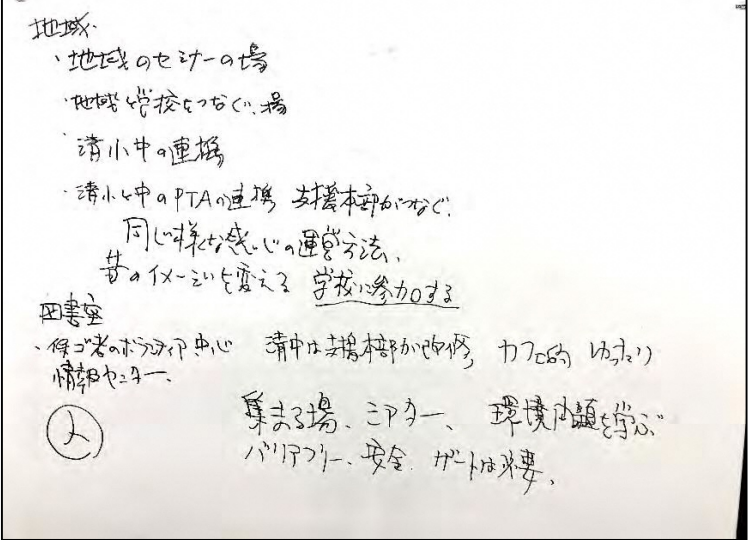 地域
・地域のセミナーの場
・地域と学校をつなぐ、場
・清小中の連携
・清小と中のPTAの連携 支援本部がつなぐ、
同じ様な感じの運営方法、
昔のイメージを変える 学校に参加する
図書室
・保ゴ者のボランティア中心 清中は支援本部が改修、カフェ的 ゆったり
情報センター、
集まる場、シアター、環境問題を学ぶ
バリアフリー、安全、ゲートは必要、